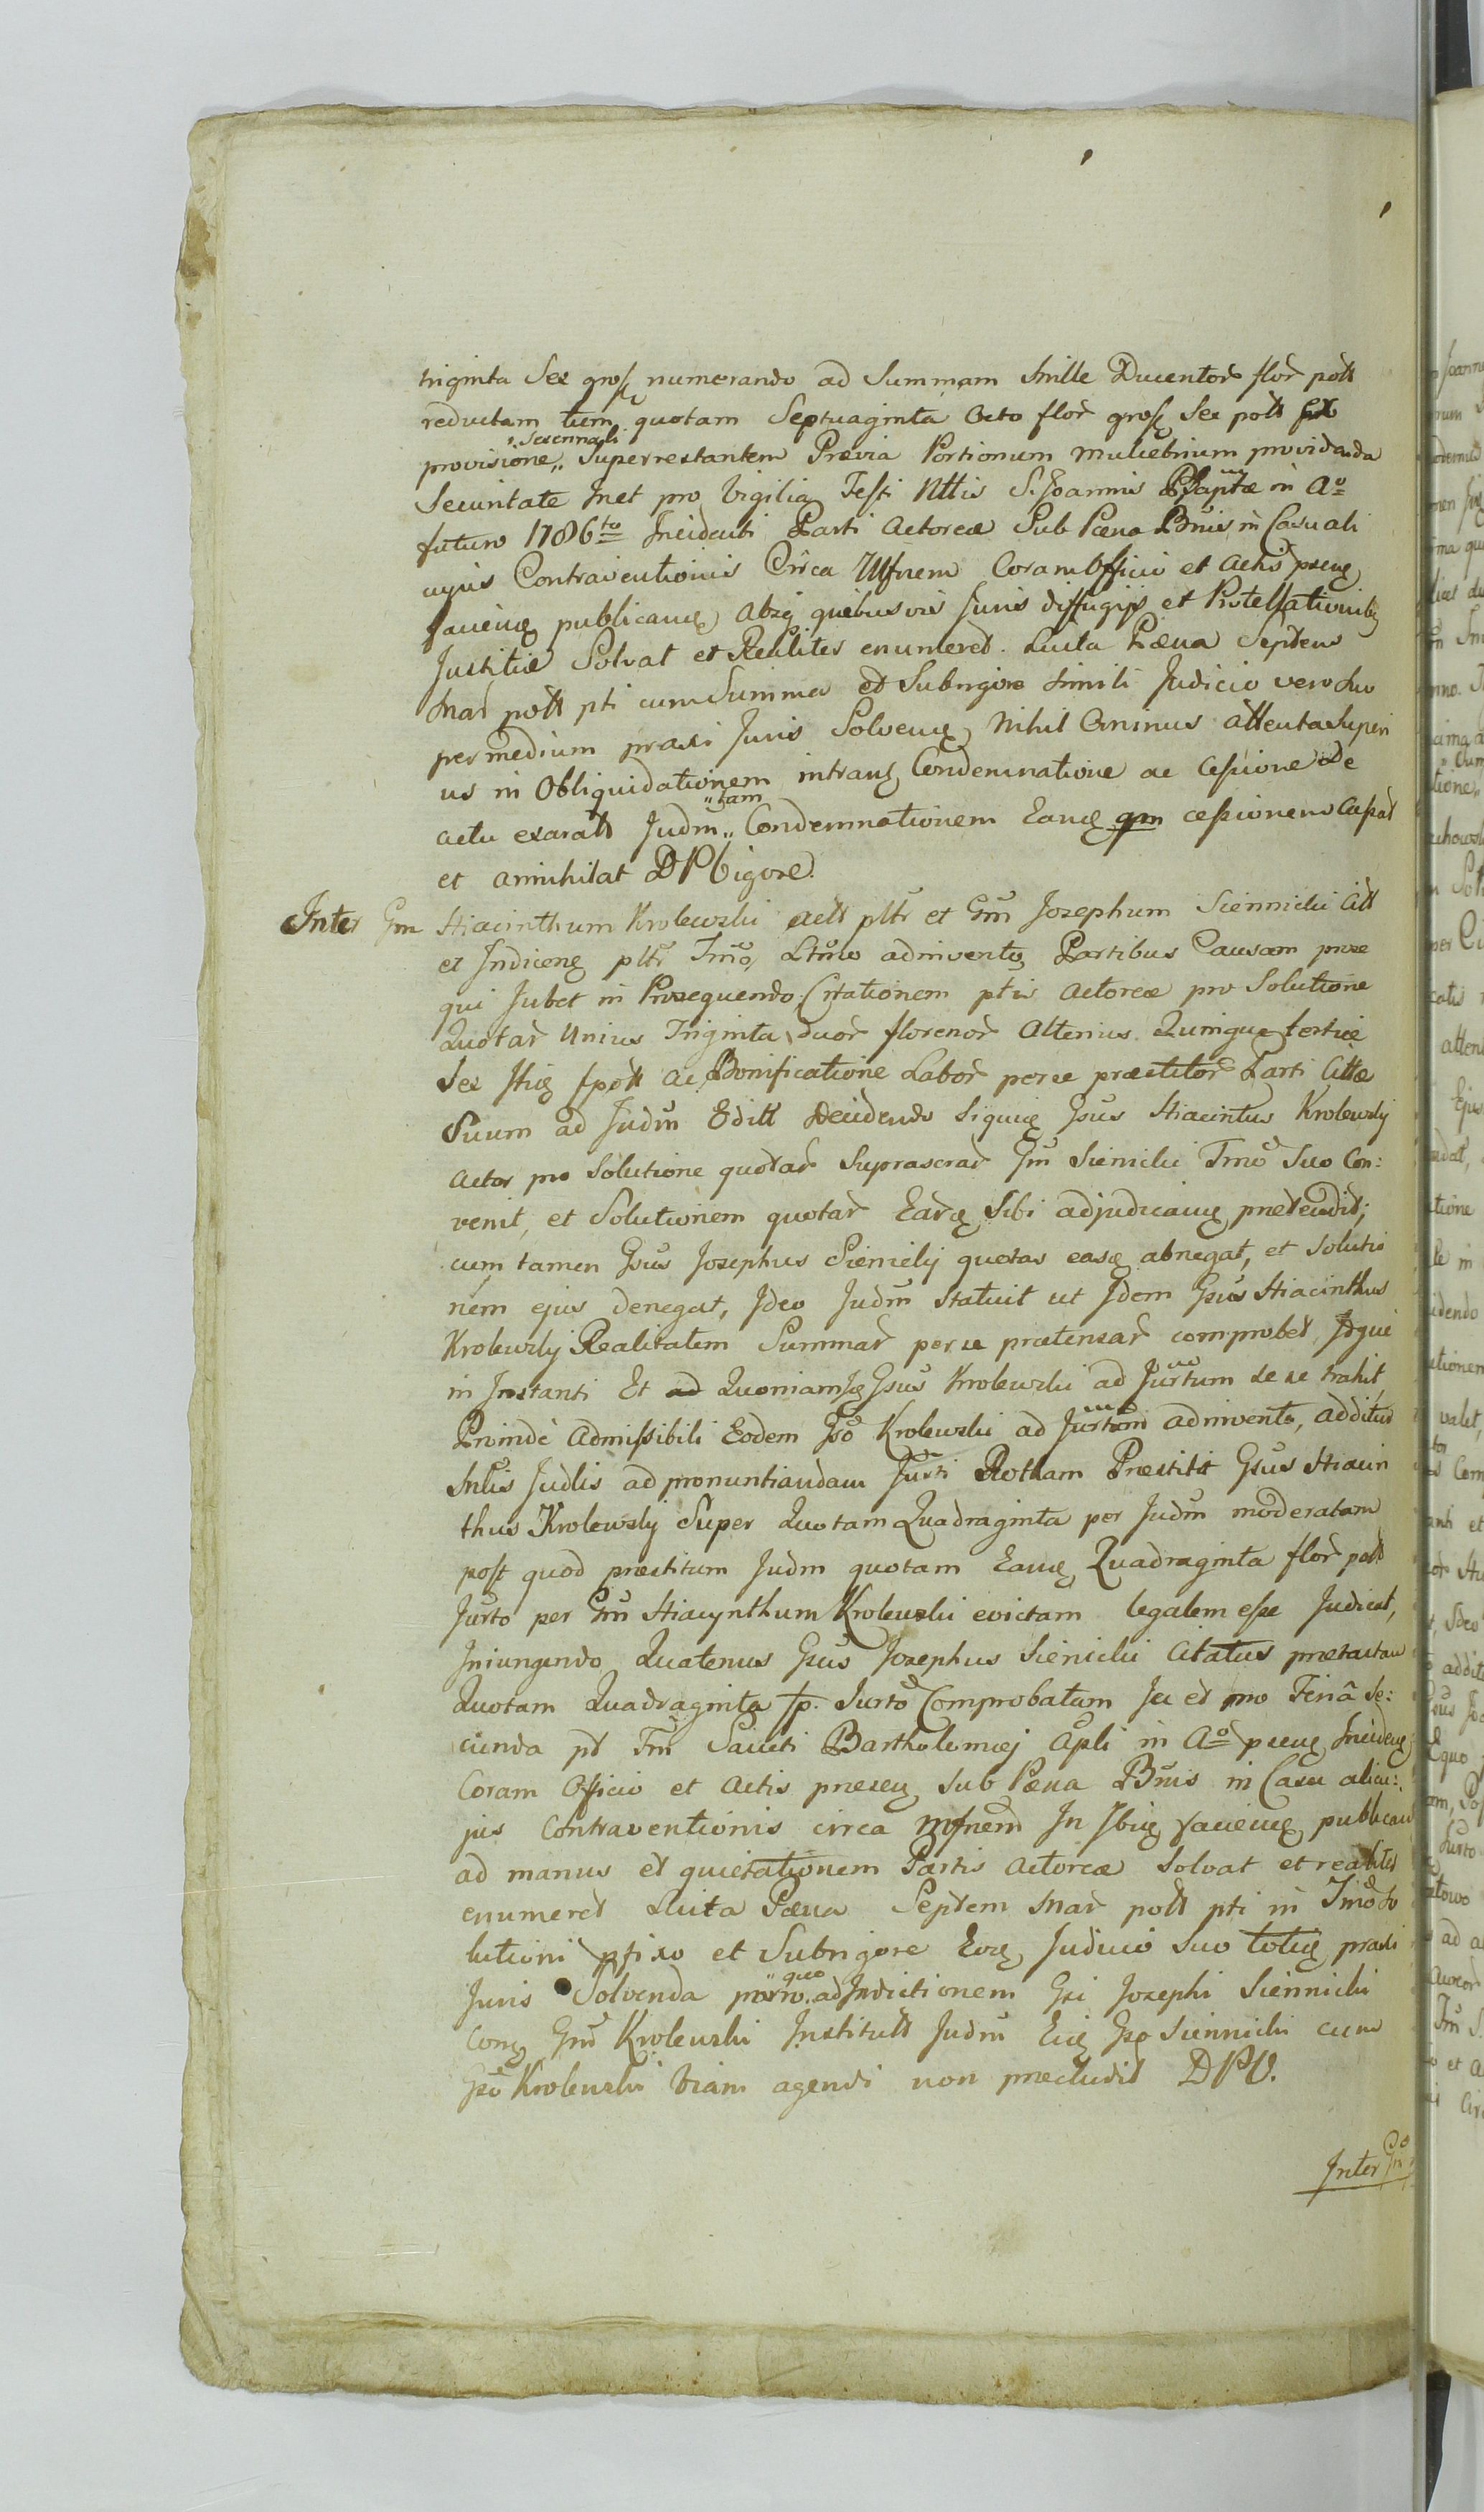 triginta Sex gross numerando ad Summam Mille Ducentor flor poll
reductam tum quotam Septuaginta Octo flor gross Sex poll
Sexennali
provisione,, Superrestantem Prævia Portionum muliebrium providenda
Securitate Inst pro Vigilia Festi Nttis S. Joannis Bapttæ in Ao
futuro 1786to Incidenti Parti Actoreæ Sub Pæna Bnis in Casu ali
cujus Contraventionis Circa Mfnem Coram Officio et Actis
publicanę Absq quibusvis Juris diffugijs et Protestationibq
Justitiæ Solvat et Realiter enumeret. Luita Pæna Septem
Mar poll pti cum Summa et Sub rigore simili Judicio vero Suo
per medium praxi Juris Solvenę Nihil Ominus attenta Superi
us in Obliquidationem intranę Condemnatione ac Cessione De
,,tam
actu exaratt Judm,, Condemnationem Eanę qm cessionem Cassat
et annihilat DPVigore.
Inter Gm Hiacinthum Krolewski actt pltr et Gm Josephum Siennicki Citt
et Indicenę pltr Tmo, Ltmo adinvento, Partibus Causam prose
qui Jubet in Prosequendo Citationem ptis Actoreæ pro Solutione
Quotar Unius Triginta duor florenor Alterius Quinque tertiæ
Sex poll ac Bonificatione Labor per se præstitor Parti Cittæ
Suum ad Judm Editt Decidendo Siquię Gsus Hiacintus Krolewsky
Actor pro Solutione quotar Suprascrar Gm Sienicki Tmo Suo Con:
venit, et Solutionem quotar Earę Sibi adjudicanę prætendit;
cum tamen Gsus Josephus Sienicky quotas easę abnegat, et Solutio
nem ejus denegat, Ideo Judm Statuit ut Idem Gsus Hiacinthus
Krolewsky Realitatem Summar per se prætensar comprobet, Idque
in Instanti Et ad Quoniam Gsus Krolewski ad Jurtum se se trahit
Proinde Admissibili Eodem Gso Krolewski ad Jurtum adinvento, additus
Mlis Judlis ad pronuntiandam Jurti Rotham Præstitit Gsus Hiacin
thus Krolewsky Super Quotam Quadraginta per Judm moderatam
post quod præstitum Judm quotam Eanę Quadraginta flor poll
Jurto per Gm Hiacynthum Krolewski evictam legalem esse Judicat,
Iniungendo Quatenus Gsus Josephus Sienicki Citatus prætactam
Quotam Quadraginta fp. Jurto Comprobatam Is et pro Feria Se:
cunda pt Fm Sancti Bartholomæj Apli in Ao præsenę Incidenę
Coram Officio et Actis præsenę Sub Pæna Bnis in Casu alicu:
jus Contraventionis circa Mfnem In publican
ad manus et quietationem Partis Actoreæ Solvat et realiter
enumeret Luita Pæna Septem Mar poll pti in Tmo So
lutioni pfixo et Sub rigore Judicio Suo praxi
Juris Solvenda
,,quo
porro. ad Indictionem Gsi Josephi Siennicki
Conę Gm Krolewski Institutt Judm Eię Gso Siennicki cum
Gso Krolewski Viam agendi non præcludit DPV.
Inter